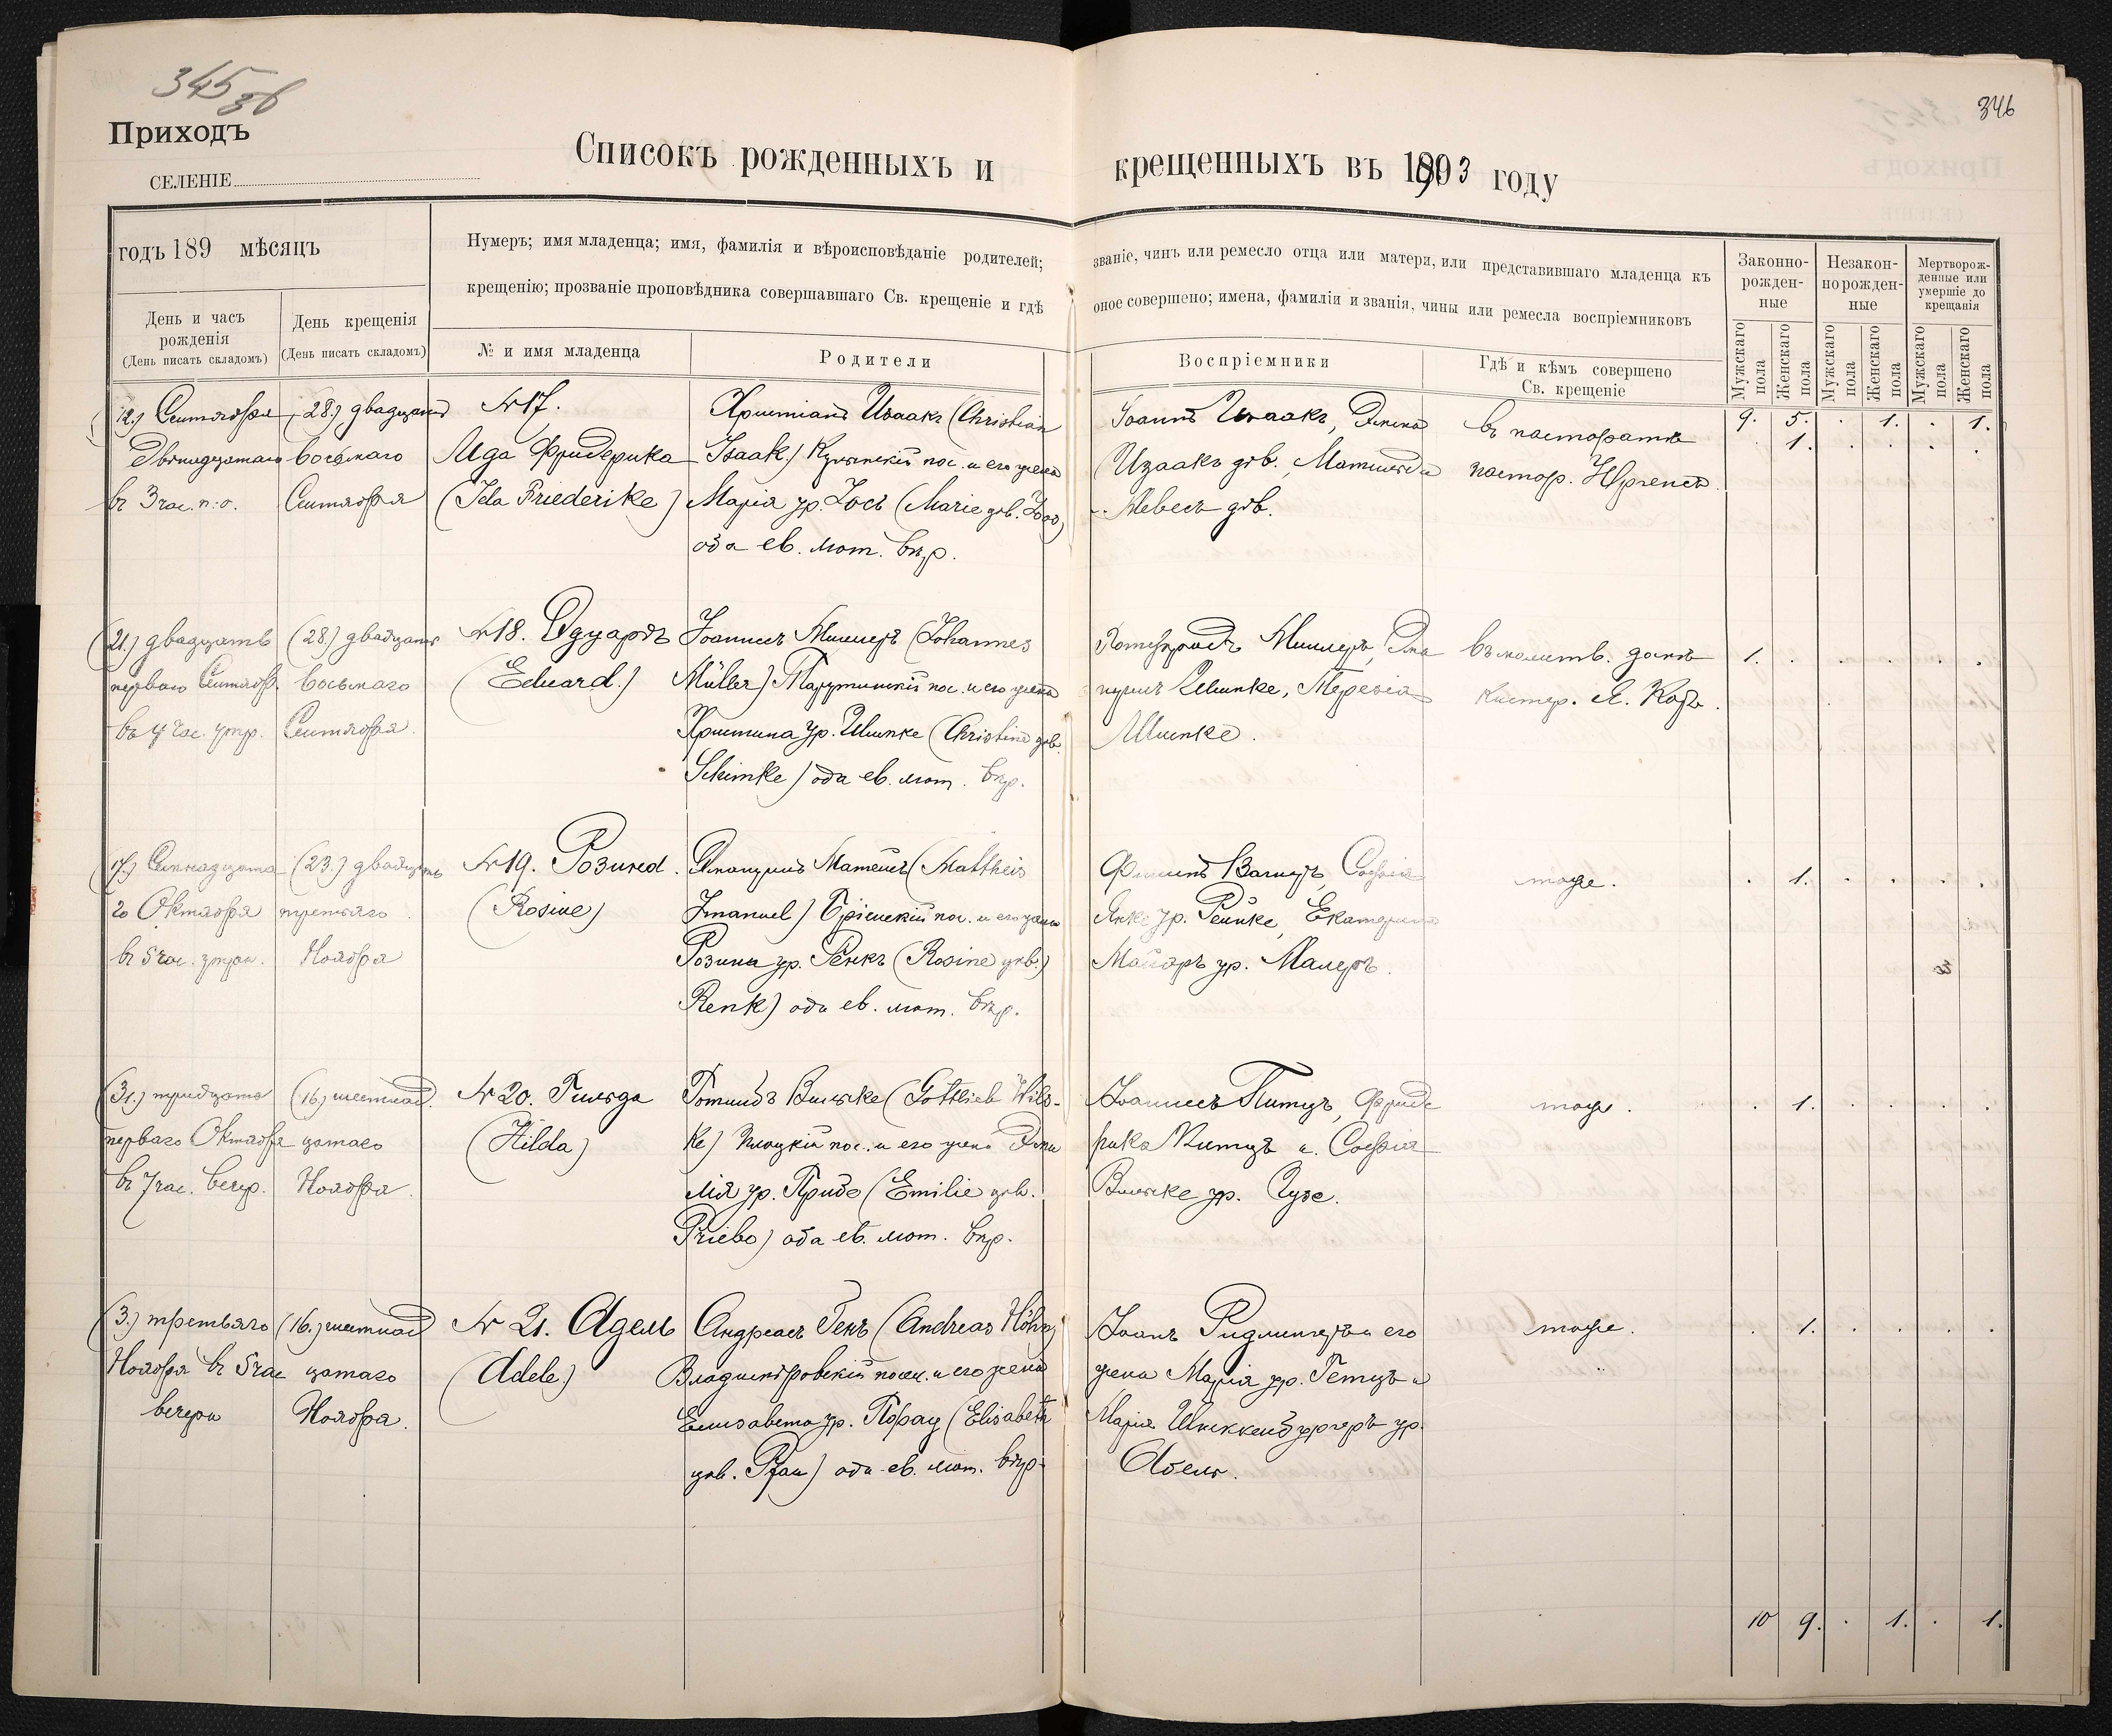 345 зб
346
Приходъ
СЕЛЕНІЕ
Списокъ рожденныхъ и крещенныхъ въ 1903 году
годъ 189 мѣсяцъ
День и часъ рожденія
(День писать складомъ)
День крещенія
(День писать складомъ)
Нумеръ; имя младенца; имя, фамилія и вѣроисповѣданіе родителей; званіе, чинъ или ремесло отца или матери, или представившаго младенца къ
крещенію; прозваніе проповѣдника совершавшаго Св. крещеніе и гдѣ оное совершено; имена, фамиліи и званія, чины или ремесла воспріемниковъ
№ и имя младенца
Родители
Воспріемники
Гдѣ и кѣмъ совершено
Св. крещеніе
Законно-
рожден-
ные
Незакон-
норожден-
ные
Мертворож-
денные или
умершіе до
крещанія
Мужскаго пола
Женскаго пола
Мужскаго пола
Женскаго пола
Мужскаго пола
Женскаго пола
(12.) Сентября
двѣнадцатаго
въ 3 час. п. о.
(28.) двадцать
восьмаго
Сентября
№ 17.
Ида Фридерика
(Ida Friederike)
Христіанъ Изаакъ (Christian
Isaak) пос. и его жена
Марія ур. Зосъ (Marie урв.
оба ев. лют. вѣр.
Іоаннъ Изаакъ,
Изаакъ дѣв. Матильда
Мевесъ дѣв.
въ пасторатѣ
пастор.
9. 5. . 1. . 1.
. 1. . . . .
(21.) двадцать
перваго Сентябр.
въ 4 час. утр.
(28.) двадцать
восьмаго
Сентября.
№ 18. Эдуардъ
(Eduard.)
Іоаннесъ Миллеръ (Johannes
Müller) Тарутинскій пос. и его жена
Христина ур. Шимке (Christine урв.
Schimke) оба ев. лют. вѣр.
Готфридъ Миллеръ, Эма
нуилъ Шимке, Терезія
Шимке.
въ молитв. домѣ
кистер. Я. Кохъ.
1. . . . . .
(17.) Семнадцата
го Октября
въ 5 час. утра.
(23.) двадцать
третьяго
Ноября
№ 19. Розина.
(Rosine)
Эмануилъ Матейсъ (Mattheis
Imanuel) Бріенскій пос. и его жена
Розина ур. Ренкъ (Rosine урв.)
Renk) оба ев. лют. вѣр.
Филиппъ Вагнеръ, Софія
Янке ур. Рейнке, Екатерина
Майеръ ур. Малеръ.
тоже.
. 1. . . . .
(31.) тридцать
перваго Октября
въ 7 час. вечер.
(16.) шестнад.
цатаго
Ноября.
№ 20. Гильда
(Hilda)
Готлибъ Вильске (Gottlieb Wils-
ke) Плоцкій пос. и его жена Эми
лія ур. Прибо (Emilie урв.
Priebo) оба ев. лют. вѣр.
Іоаннесъ Питцъ, Фриде
рика Питцъ и Софія
Вильске ур. Гузе.
тоже.
. 1. . . . .
(3.) третьяго
Ноября въ 5 час
вечера
(16.) шестнад
цатаго
Ноября.
№ 21. Адель
(Adele.)
Андреасъ Генъ (Andreas Höhn)
посел. и его жена
Елизавета ур. Пфау (Elisabeth
урв. Pfau) оба ев. лют. вѣр.
Іоаннъ Ридлингеръ и его
жена Марія ур. Гетцъ и
Марія ур.
Абель.
тоже.
. 1. . . . .
10 9. . 1. . 1.